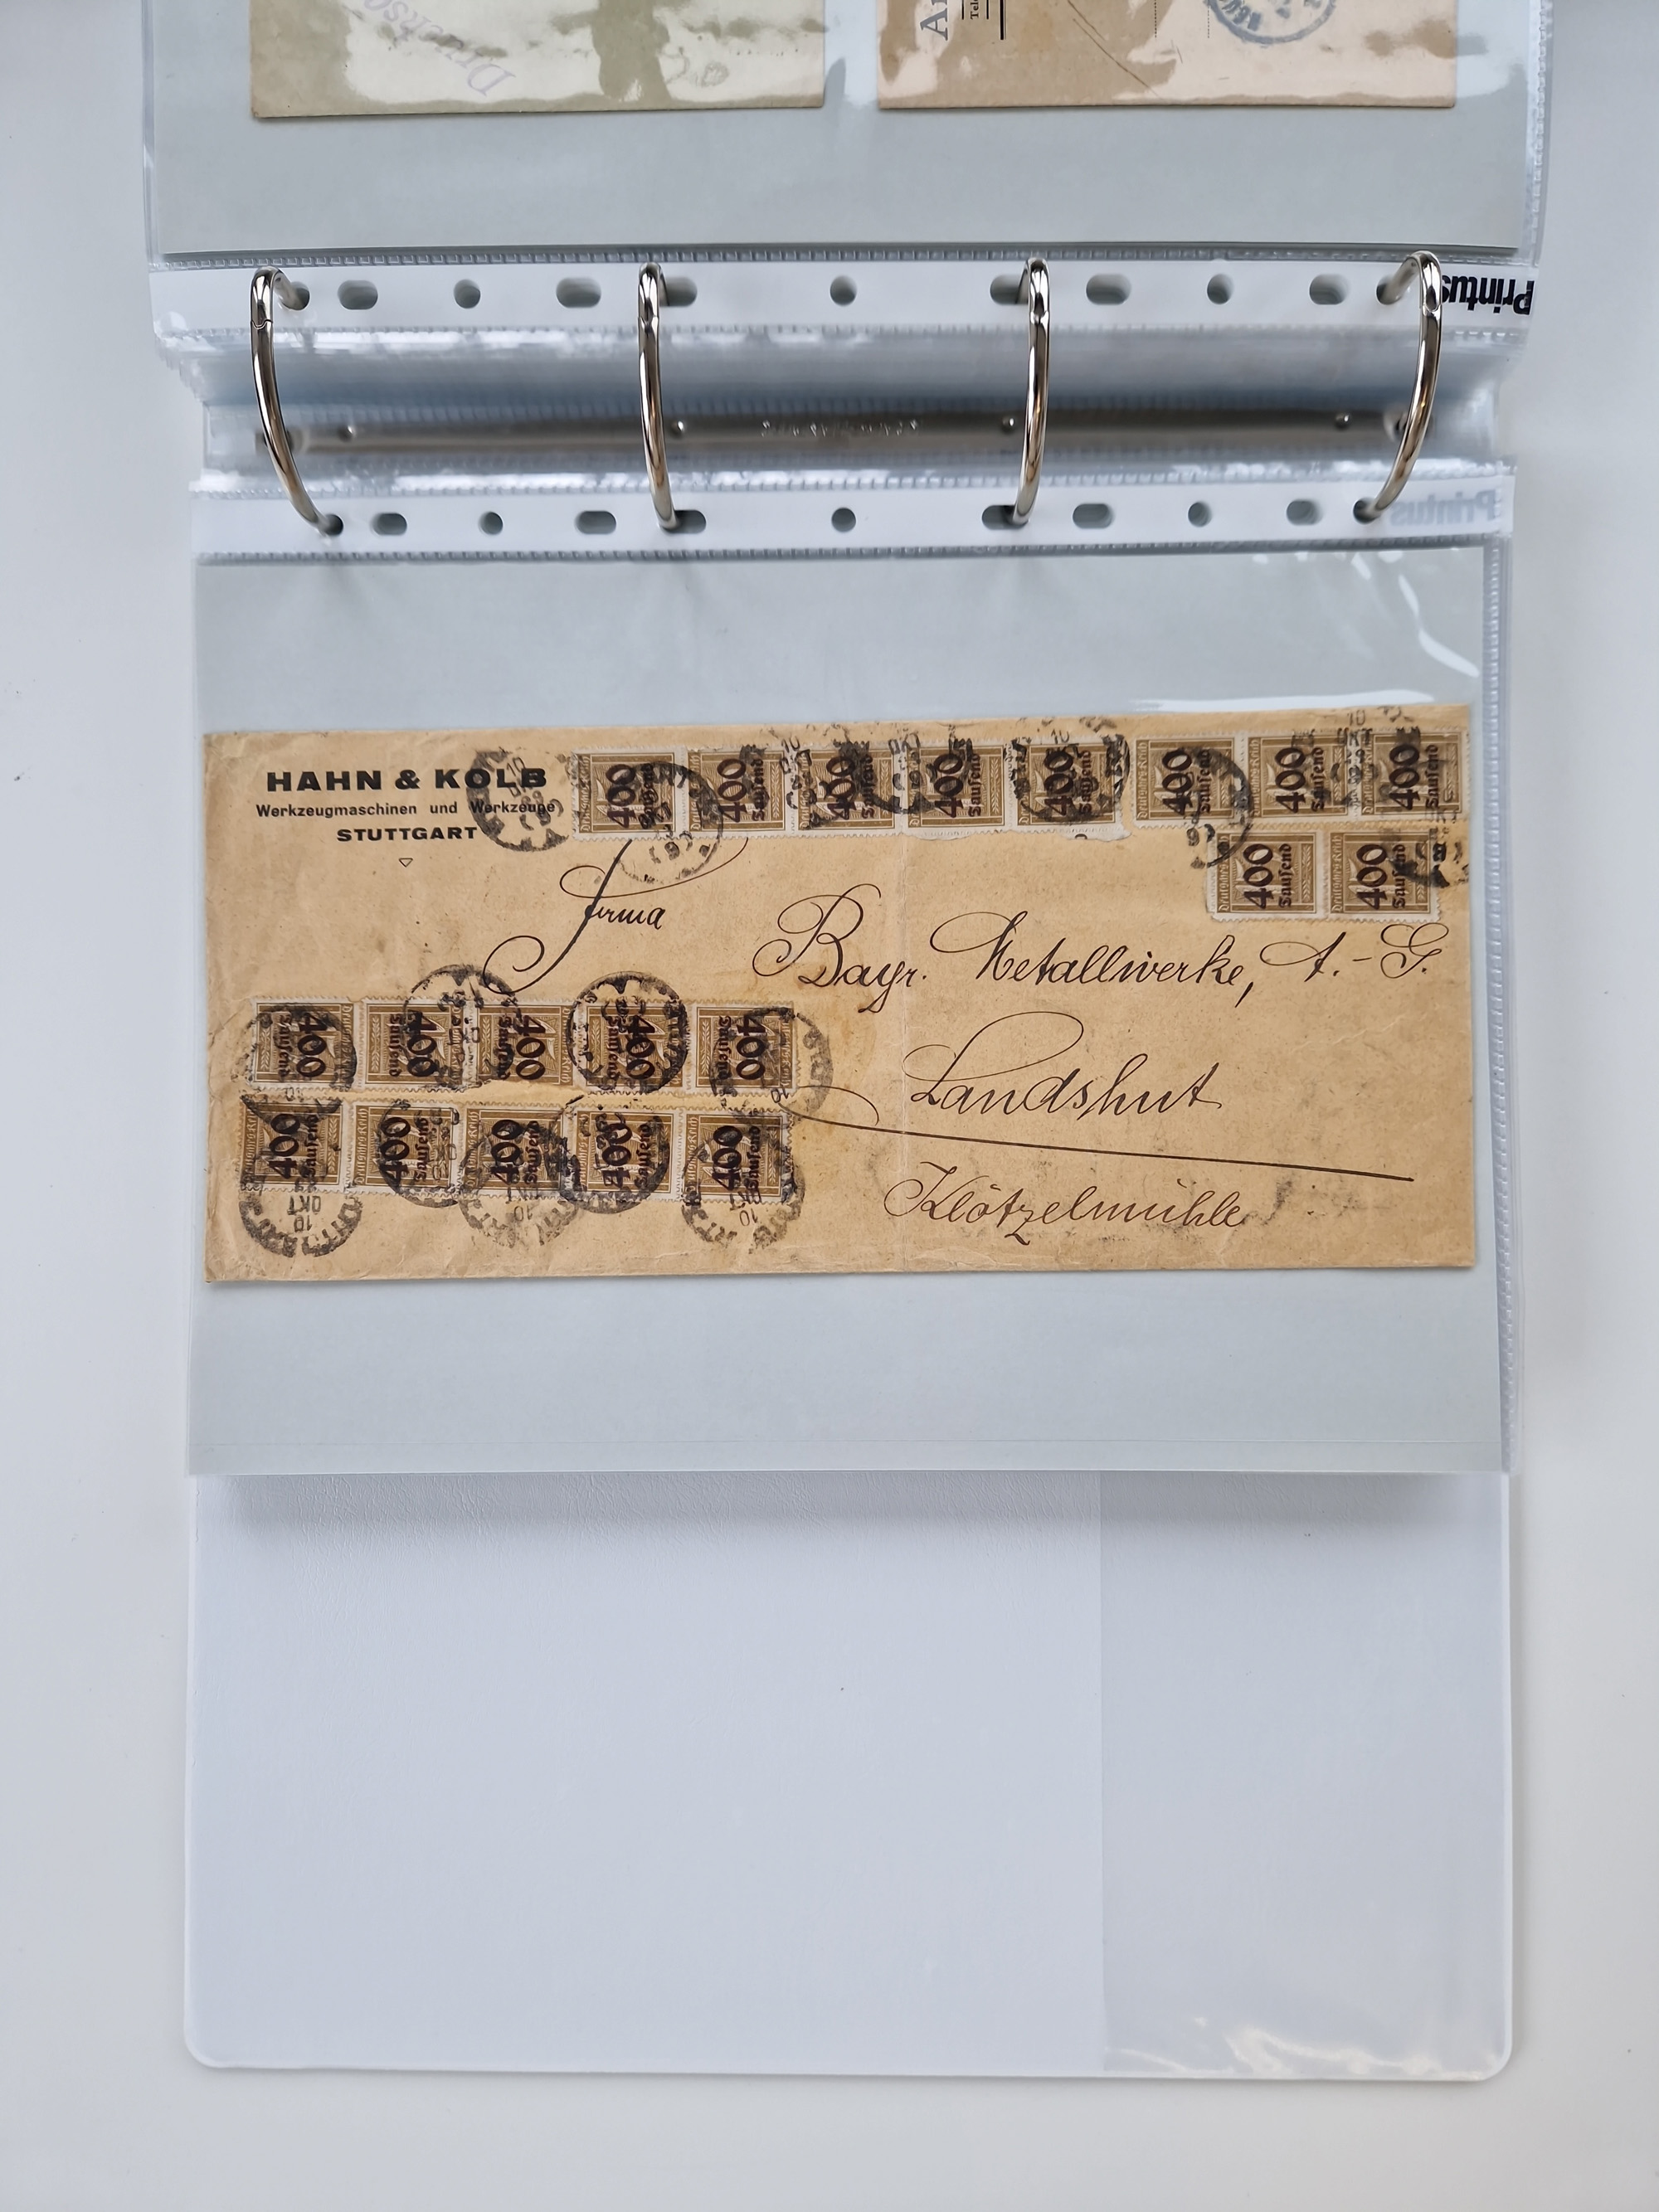 Drucksa
Printus
Printus
HAHN & KOLB
Werkzeugmaschinen und Werkzeuge
STUTTGART
400 Tausend
400 Tausend
400 Tausend
400 Tausend
400 Tausend
400 Tausend
400 Tausend
400 Tausend
400 Tausend
400 Tausend
Firma
Bayr. Metallwerke, A.-G.
Landshut
Klötzelmühle
400 Tausend
400 Tausend
400 Tausend
400 Tausend
400 Tausend
400 Tausend
400 Tausend
400 Tausend
400 Tausend
400 Tausend
10
OKT